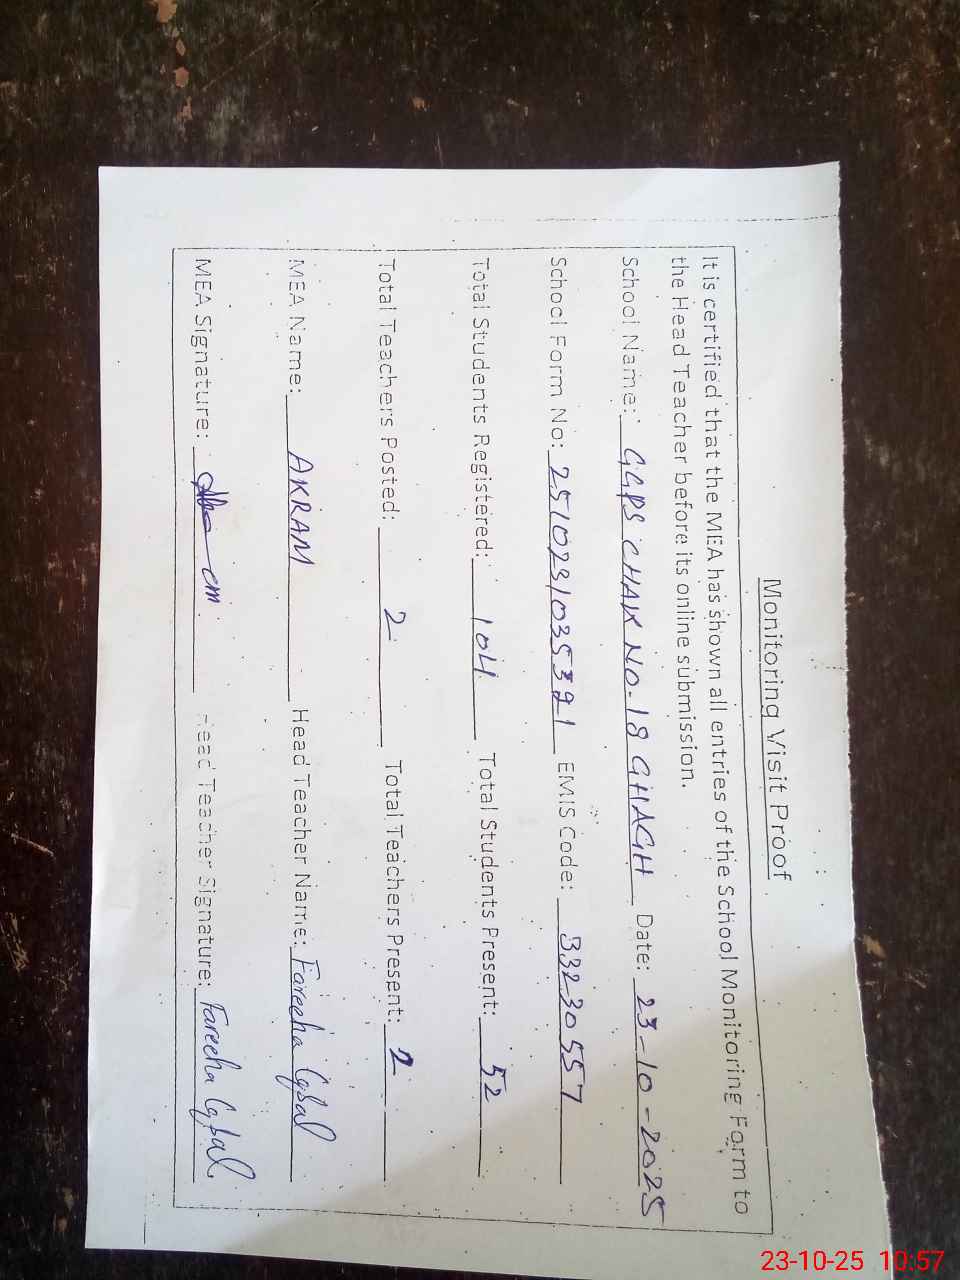 Monitoring Visit Proof
It is certified that the MEA has shown all entries of the School Monitoring Form to
the Head Teacher before its online submission.
School Name: GGPS CHAK NO.18 GHAGH Date: 23-10-2025
School Form No: 2510231035321 EMIS Code: 33230557
Total Students Registered: 104 Total Students Present: 52
Total Teachers Posted: 2 Total Teachers Present: 2
MEA Name: AKRAM Head Teacher Name: Fareeha Iqbal
MEA Signature: Head Teacher Signature: Fareeha Iqbal
23-10-25 10:57